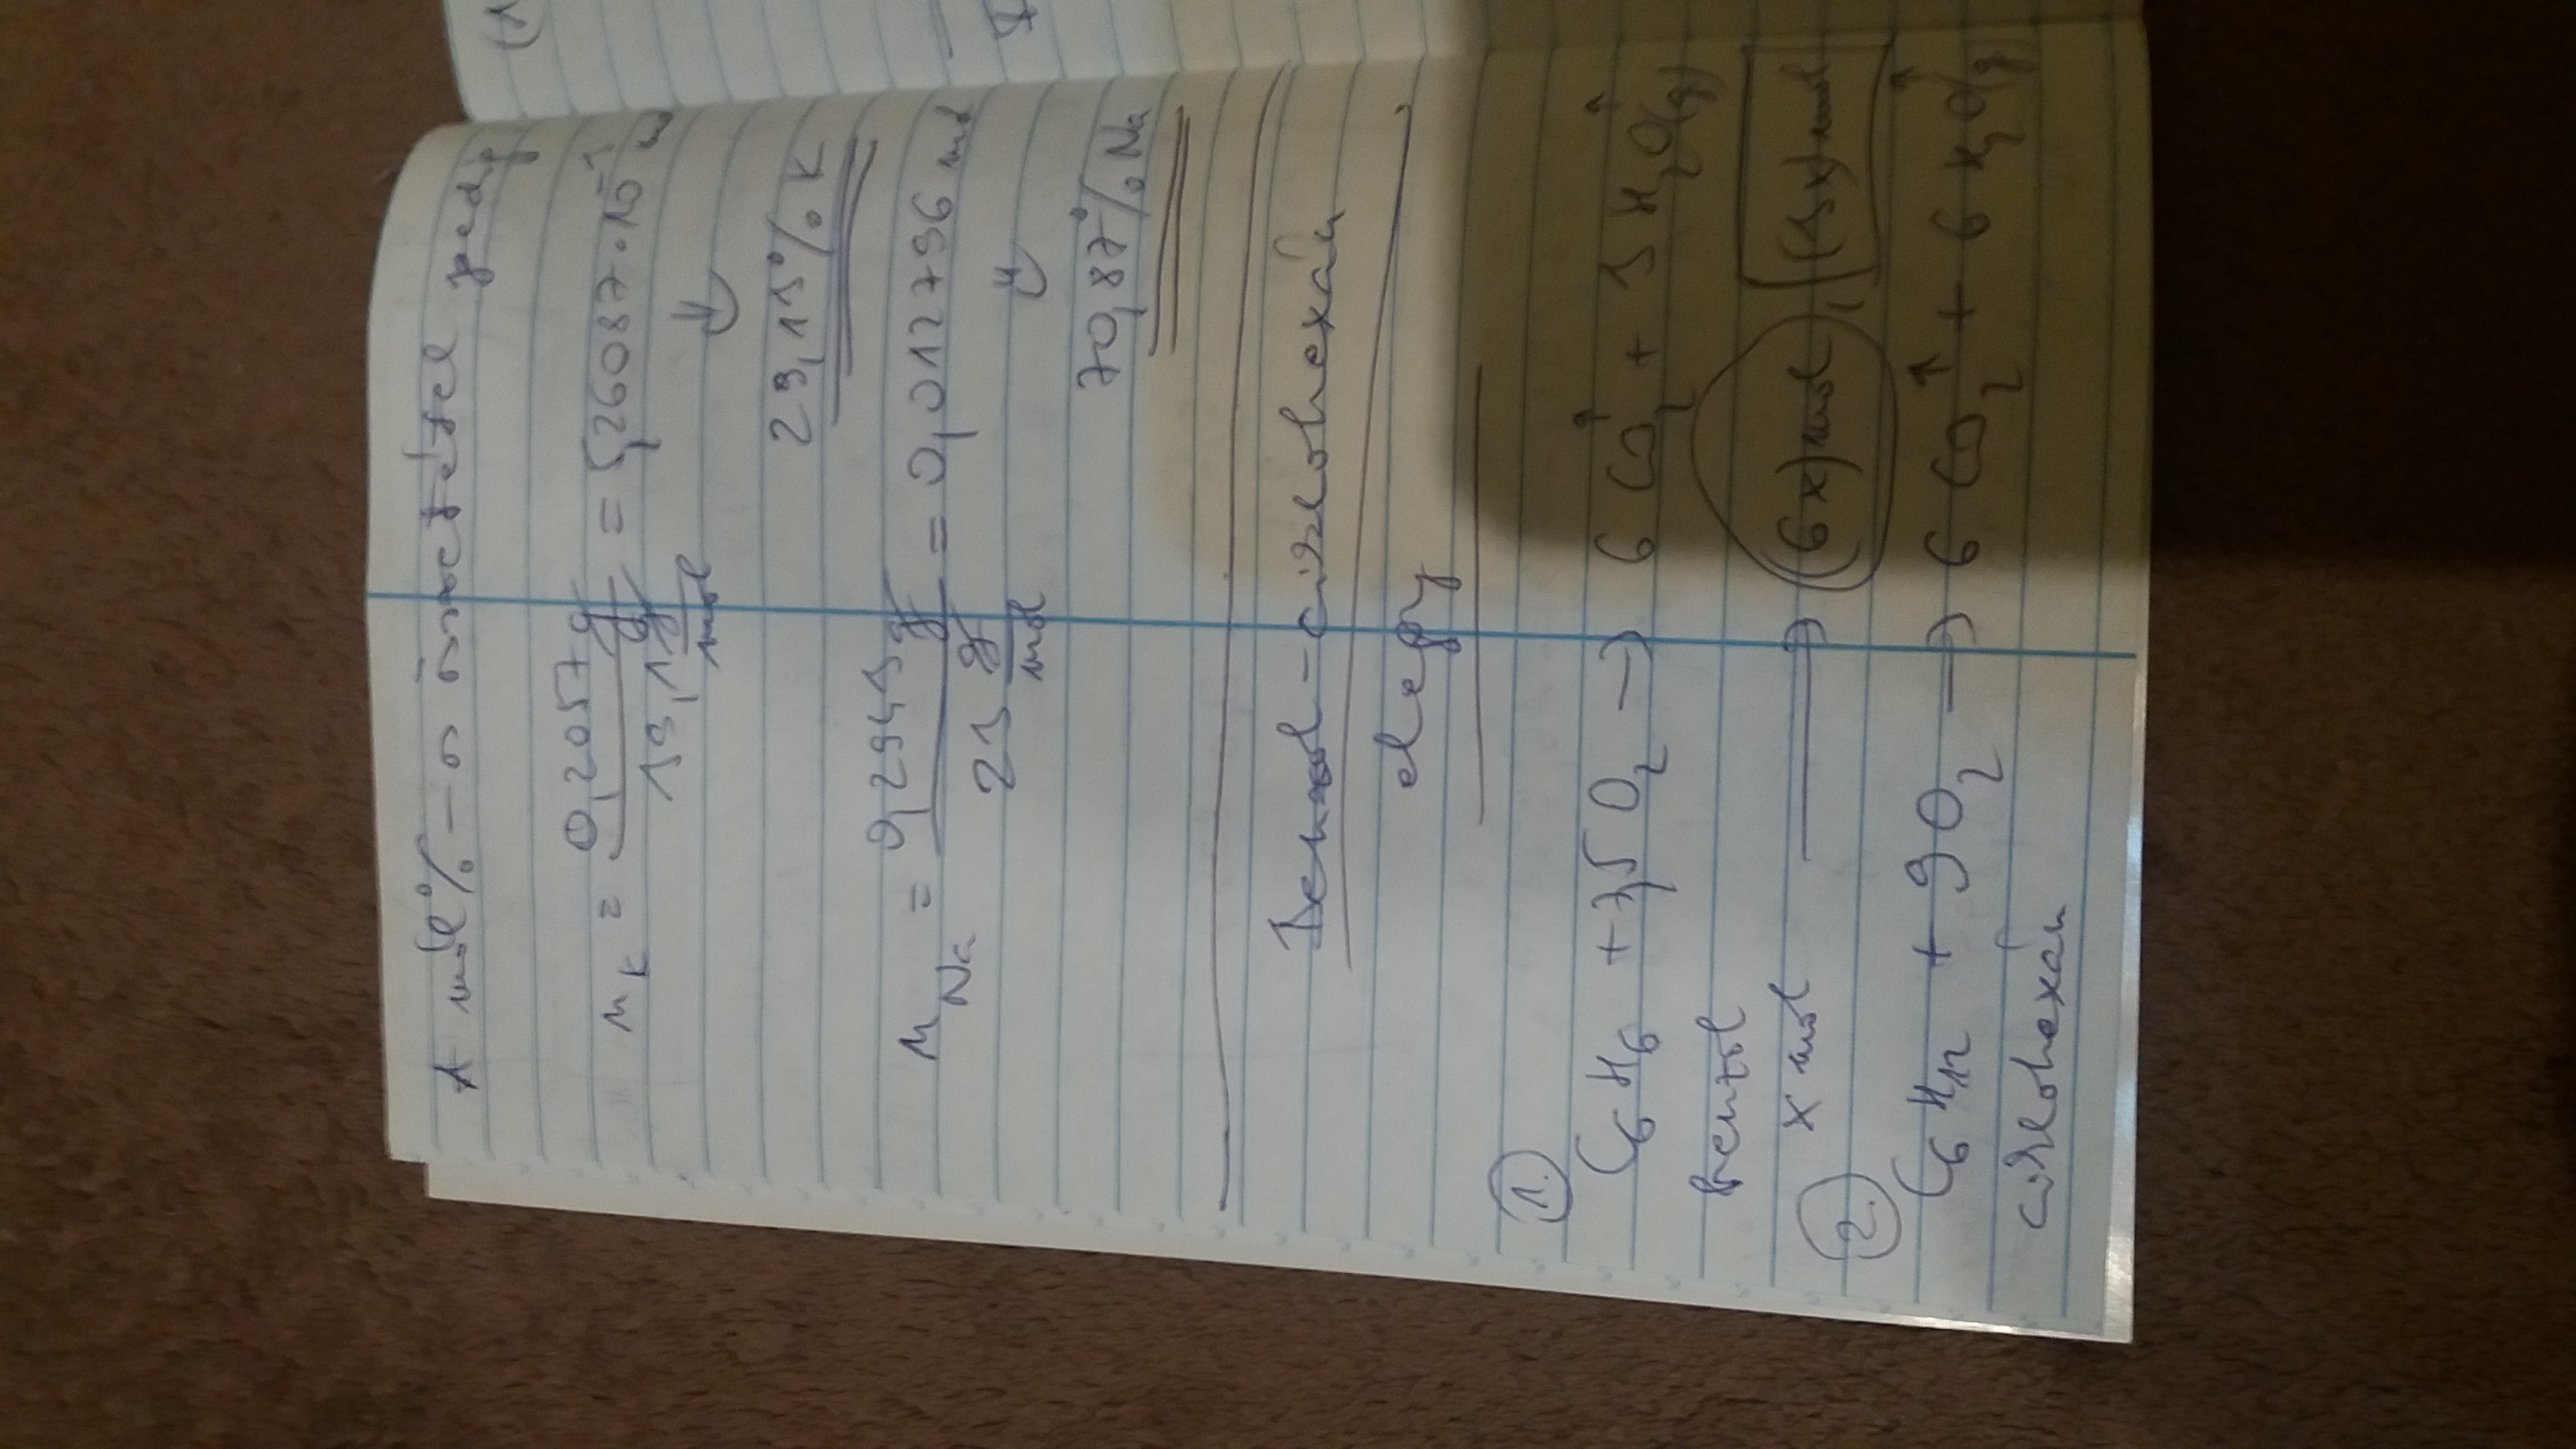 A mól%-os összetétel pedig
n_K = 0,2057 g / 39,1 g/mol = 5,26087·10^-3 m
⇓
29,13% K
n_Na = 0,2943 g / 23 g/mol = 0,012796 mol
⇓
70,87% Na
Benzol-ciklohexán
elegy
1.
C6H6 + 7,5 O2 → 6 CO2↑ + 3 H2O(g)↑
benzol
x mol → (6x) mol, (3x) mol
2.
C6H12 + 9 O2 → 6 CO2↑ + 6 H2O(g)↑
ciklohexán